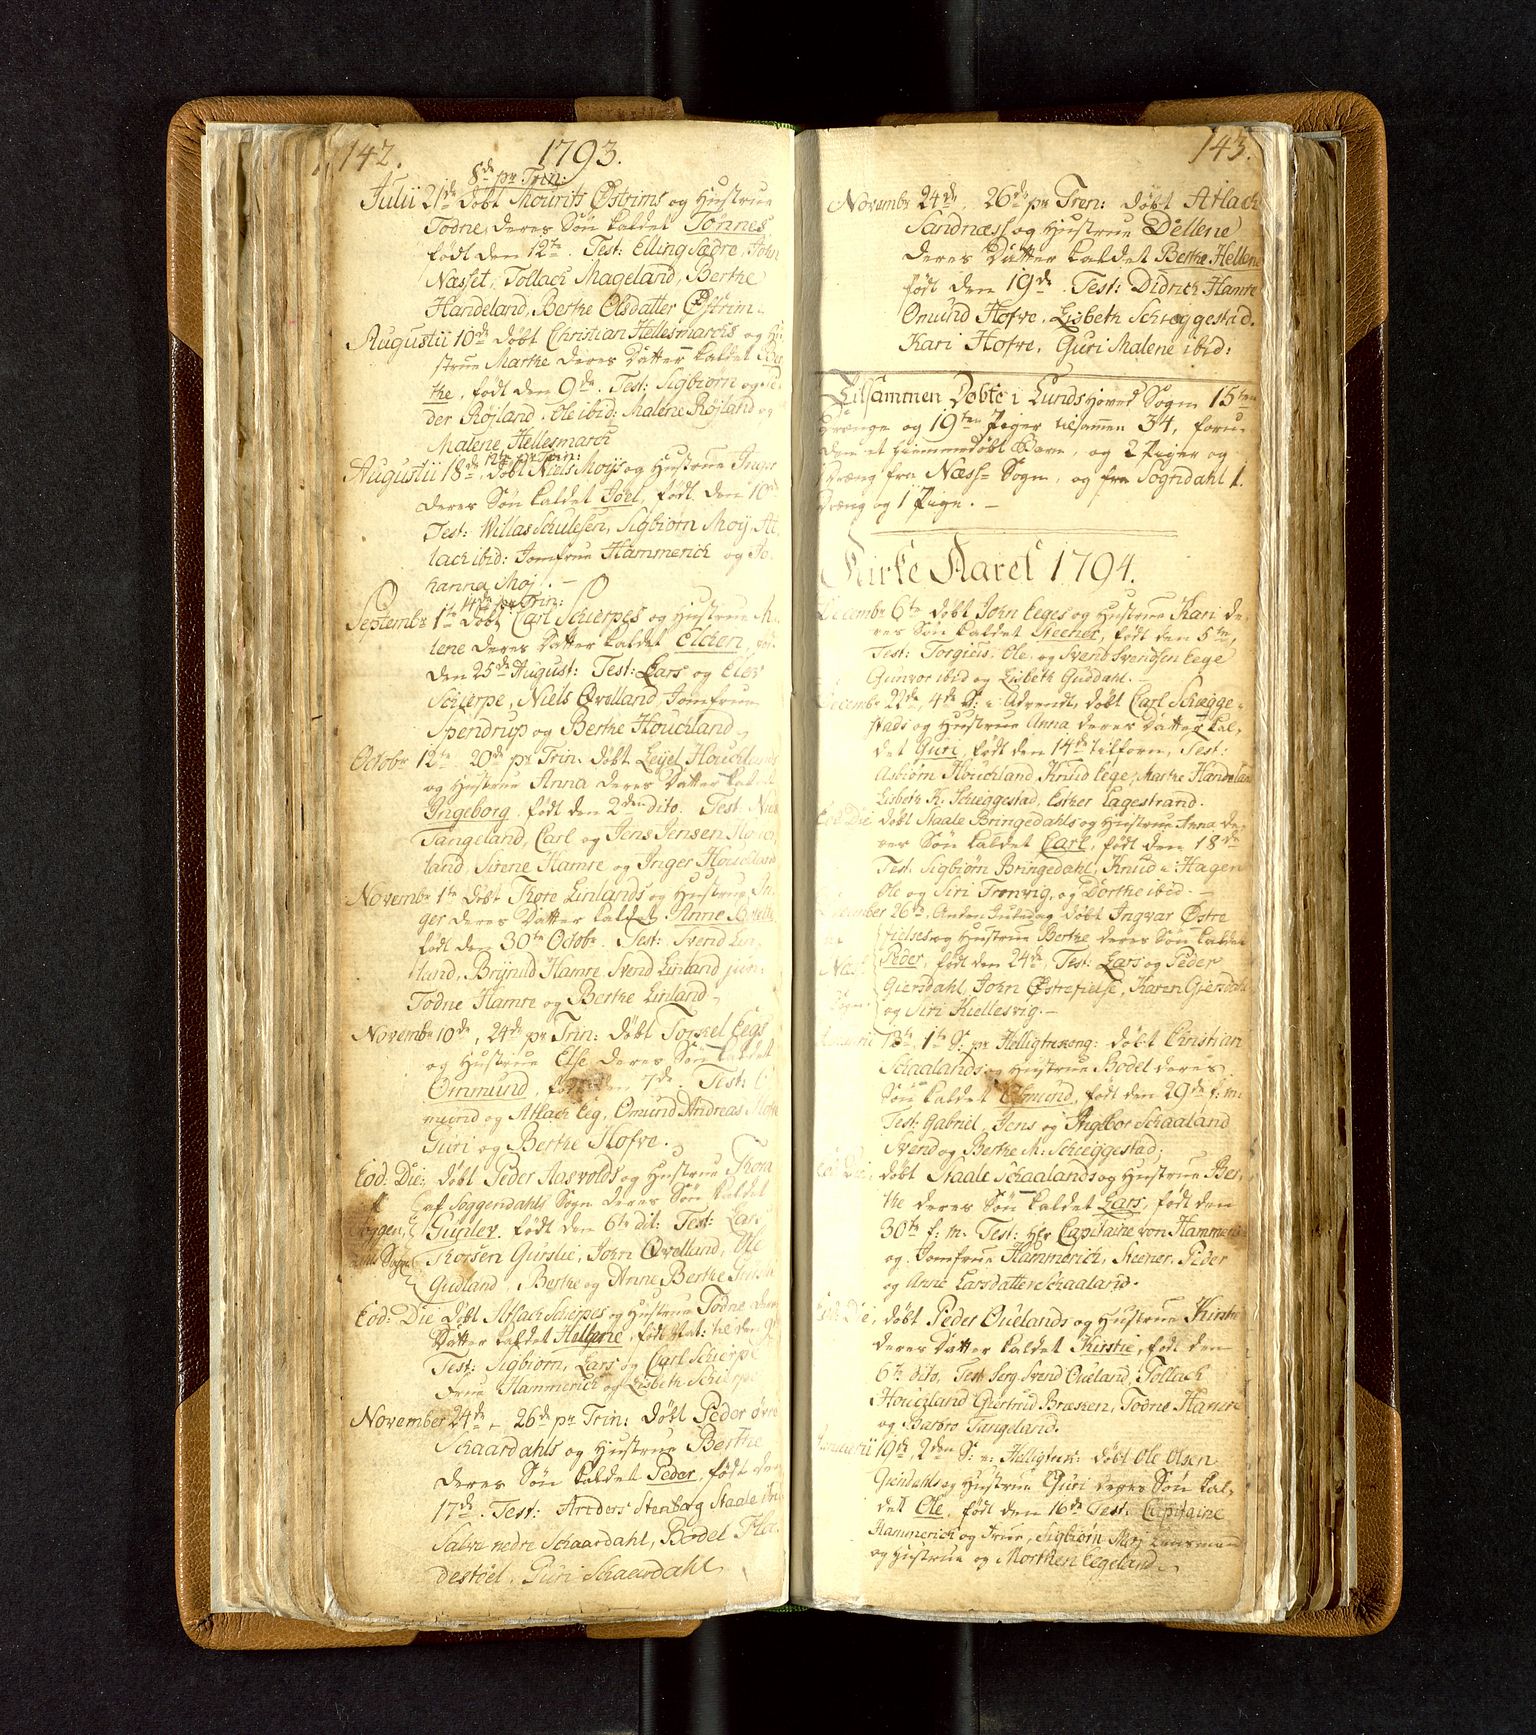 142. 1793.
8de pr Trin:
Julii 21de Døbt Mourits Østrims og Hustrue
Todne, deres Søn kaldet Tønnes,
født den 12te. Test: Elling Sædre, John
Næsset, Tollach Mageland, Berthe
Handeland, Berthe Olsdatter Østrim.
Augustii 10de døbt Christian Hellesmarchs og Hu-
strue Marthe deres Datter kaldet Ber
the, født den 9de. Test: Sigbiørn og Pe-
der Røjland, Ole ibid: Malene Røjland og
Malene Hellesmarch
12te pr Trin:
Augustii 18de, Døbt Niels Moÿs og Hustrue Inger
deres Søn kaldet Joel, født den 10de
Test: Willas Schulesen, Sigbiørn Moÿ, At-
lach ibid: Jomfrue Hammerich og Jo-
hanna Moj. –
14de pr Trin:
Septembr 1te Døbt Carl Schierpes og Hustrue Ma-
lene deres Datter kaldet Elchen, fød
den 25de August: Test: Lars og Elev
Schierpe, Niels Qvelland, Jomfrue
Spendrup og Berthe Houchland
Octobr 12te 20de pr Trin. døbt Leijel Houchlands
og Hustrue Anna deres Datter kaldet
Ingeborg, født den 2den dito. Test Niels
Tangeland, Carl og Jens Jensen Houch
land, Sirene Hamre og Inger Houchland
Novembr 1te Døbt Thore Linlands og Hustrue In-
ger deres Datter kaldet Anne
født den 30te Octobr. Test: Svend Lin-
land, Brÿnild Hamre, Svend Linland jun:
Todne Hamre og Berthe Linland
Novembr 10de, 24de pr Trin: døbt Torkel Eegs
og Hustrue Else deres Søn kaldet
Ommund, født den 7de. Test: O
mund og Atlach Eeg, Omund Andreas Hofve
Guri og Berthe Hofve.
Eod: Die: døbt Peder Aasvolds og Hustrue Thom
af Soggendahls Sogn deres Søn kaldet
Soggen- Gunlev, født den 6te dit: Test: Lars
dahls Sogn Thorsen Gurslie, John Qvelland, Ole
Gudland, Berthe og Anne Berthe
Eod: Die Døbt Atlach Schierpes og Hustrue Todne deres
Datter kaldet Hellene, født Nat: til den 9de
Test: Sigbiørn, Lars og Carl Schierpe
Frue Hammerich og Lisbeth Schierpe
November 24de – 26de pr Trin: døbt Peder øvre
Schaardahls og Hustrue Berthe
deres Søn kaldet Peder, født den
17de. Test: Anders Stenberg Staale ibid
Salve nedre Schaardahl, Bodel Flec
destøel, Guri Schaardahl
143.
Novembr 24de, 26de pr Tren: døbt Atlach
Sandnæss og Hustrue Dellene
deres Datter kaldet Berthe Hellene
født den 19de. Test: Didrich Hamre
Omund Hofve, Lisbeth Schieggestad.
Kari Hofve, Guri Malene ibid:
Tilsammen Døbte i Lunds Hoved Sogn 15ten
Drænge og 19ten Piger tilsammen 34, foru-
den et hiemmedøbt Barn, og 2 Piger og
Dræng fra Næss- Sogn, og fra Sogndahl 1.
Dræng og 1 Pige. –
Kirke Aaret 1794.
Decembr 6te døbt John Eeges og Hustrue Kari de-
res Søn kaldet Steener, født den 5te,
Test: Torgius, Ole og Svend Svendsen Eege
Gunvor ibid og Lisbeth Guddahl.
Decembr 22de, 4de S: i Advendt, døbt Carl Schiegge-
stads og Hustrue Anna deres Datter kal-
det Guri, født den 14de tilforn, Test:
Asbiørn Houchland, Knud Eege, Marthe Handeland
Lisbeth K: Schieggestad, Esther Eagestrand.
Eod: Die døbt Staale Bringedahls og Hustrue Anna de-
res Søn kaldet Carl, født den 18de
Test: Sigbiørn Bringedahl, Knud i Hagen
Ole og Siri Tronvig, og Dorthe ibid. –
December 26te, Anden Juledag døbt Ingvar Østre
fielses og Hustrue Berthe deres Søn kaldet
Næss Peder, født den 24de. Test: Lars og Peder
Sogn Giersdahl, John Østrefielse, Karen Giersdahl
og Siri Kiellesvig. –
Januarii 12te, 1te S: pr Helligtrekong: døbt Christian
Schaalands og Hustrue Bodel deres
Søn kaldet Osmund, født den 29de f:m:
Test: Gabriel, Jens og Ingebor Schaaland
Svend og Berthe M: Schieggestad;
Eod: Die, døbt Staale Schaalands og Hustrue Ber-
the deres Søn kaldet Lars, født den
30te f:m. Test: Hr Capitaine von Hammerich
og Jomfrue Hammerich, Steener, Peder
og Anne Larsdatter Schaaland.
Eod: Die, døbt Peder Ouelands og Hustrue Kirstie
deres Datter kaldet Kirstie, født den
6te dito, Test Serg. Svend Oueland, Tollach
Houchland Giertrud Bræsten, Todne Hamre
og Barbro Tangeland.
Januarii 19de, 2den S: e: Helligtrek: døbt Ole Olsen
Giendahls og Hustrue Guri deres Søn kal-
det Ole, født den 16de Test: Capitaine
Hammerich og Frue, Sigbiørn Moj Lensmand
og Hustrue og Morthen Eegeland.